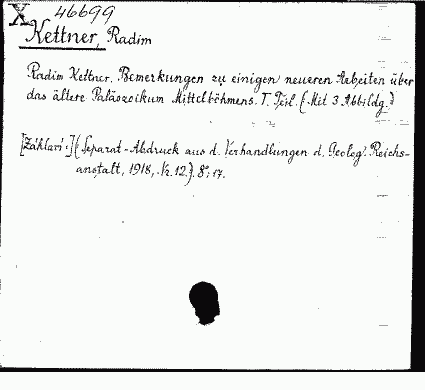 X 46699
Kettner, Radim
Radim Kettner. Bemerkungen zu einigen neueren Arbeiten über
das ältere Paläozoikum Mittelböhmens. I. Teil. (Mit 3 Abbildg.)
(Separat-Abdruck aus d. Verhandlungen d. Geolog. Reichs-
anstalt, 1918, Nr. 12.). 8°; 17.